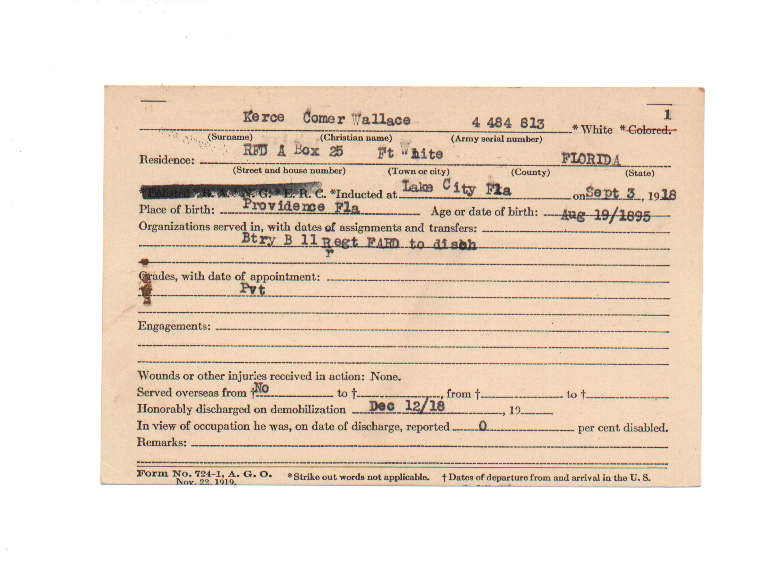 1
Kerce Comer Wallace 4 484 813 * White * Colored.
(Surname) (Christian name) (Army serial number)
RFD A Box 25 Ft White FLORIDA
Residence:
(Street and house number) (Town or city) (County) (State)
E. R. C. *Inducted at Lake City Fla on Sept 3, 1918
Place of birth: Providence Fla Age or date of birth: Aug 19/1895
Organizations served in, with dates of assignments and transfers:
Btry B 11 Regt FARD to disch
r
Grades, with date of appointment:
Pvt
Engagements:
Wounds or other injuries received in action: None.
Served overseas from † No to †, from † to †
Honorably discharged on demobilization Dec 12/18, 19
In view of occupation he was, on date of discharge, reported 0 per cent disabled.
Remarks:
Form No. 724-1, A. G. O. *Strike out words not applicable. † Dates of departure from and arrival in the U. S.
Nov. 22, 1919.